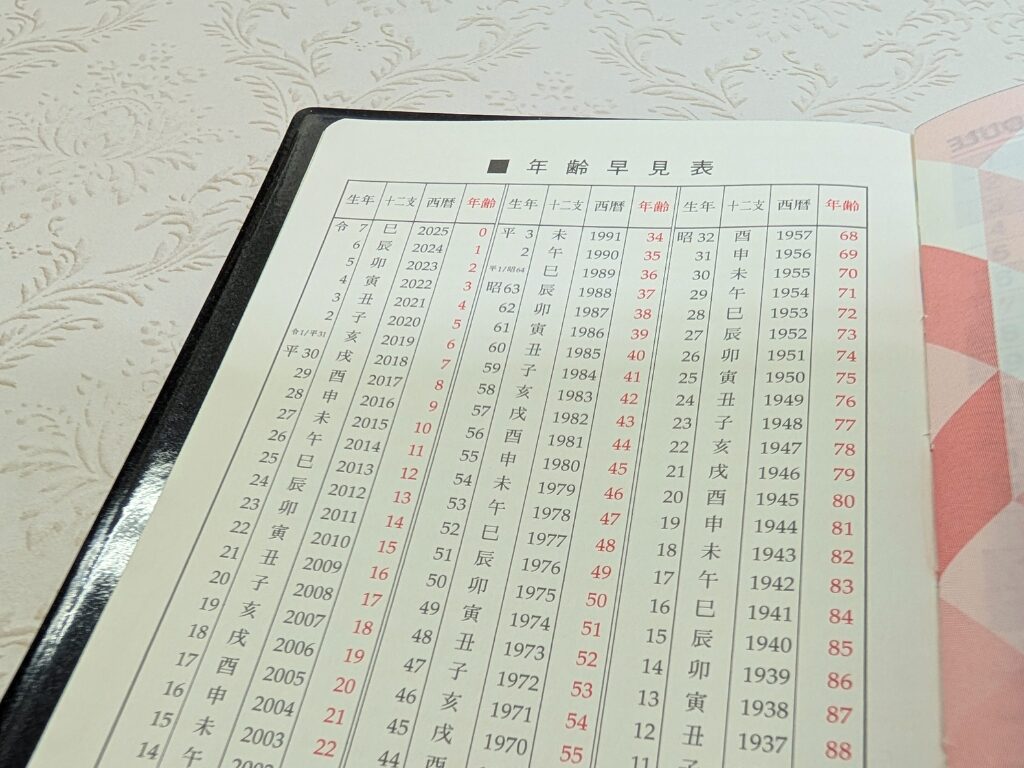 ■ 年齢早見表
生年 十二支 西暦 年齢 生年 十二支 西暦 年齢 生年 十二支 西暦 年齢
令 7 巳 2025 0 平 3 未 1991 34 昭 32 酉 1957 68
6 辰 2024 1 2 午 1990 35 31 申 1956 69
5 卯 2023 2 平1/昭64 巳 1989 36 30 未 1955 70
4 寅 2022 3 昭 63 辰 1988 37 29 午 1954 71
3 丑 2021 4 62 卯 1987 38 28 巳 1953 72
2 子 2020 5 61 寅 1986 39 27 辰 1952 73
令1/平31 亥 2019 6 60 丑 1985 40 26 卯 1951 74
平 30 戌 2018 7 59 子 1984 41 25 寅 1950 75
29 酉 2017 8 58 亥 1983 42 24 丑 1949 76
28 申 2016 9 57 戌 1982 43 23 子 1948 77
27 未 2015 10 56 酉 1981 44 22 亥 1947 78
26 午 2014 11 55 申 1980 45 21 戌 1946 79
25 巳 2013 12 54 未 1979 46 20 酉 1945 80
24 辰 2012 13 53 午 1978 47 19 申 1944 81
23 卯 2011 14 52 巳 1977 48 18 未 1943 82
22 寅 2010 15 51 辰 1976 49 17 午 1942 83
21 丑 2009 16 50 卯 1975 50 16 巳 1941 84
20 子 2008 17 49 寅 1974 51 15 辰 1940 85
19 亥 2007 18 48 丑 1973 52 14 卯 1939 86
18 戌 2006 19 47 子 1972 53 13 寅 1938 87
17 酉 2005 20 46 亥 1971 54 12 丑 1937 88
16 申 2004 21 45 戌 1970 55 11
15 未 2003 22 44 酉
14 午